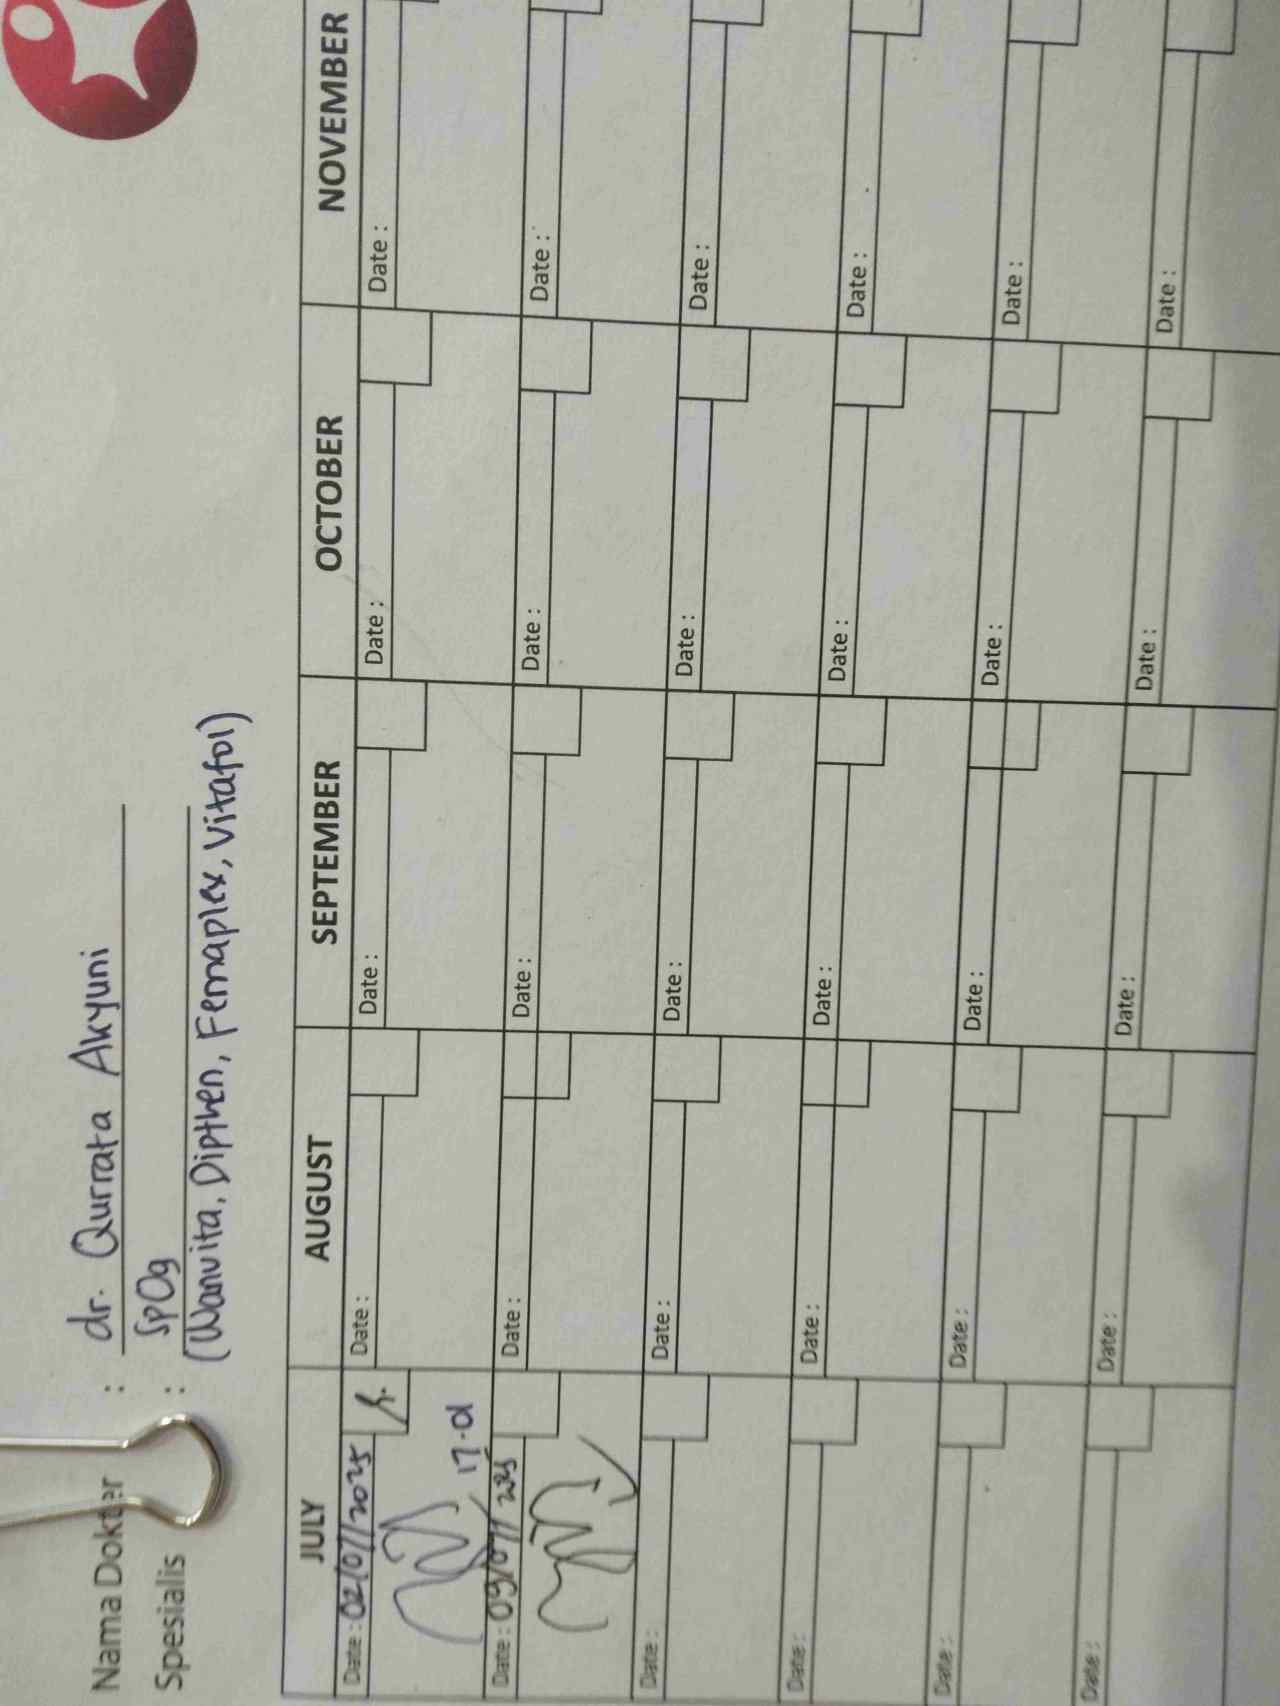 Nama Dokter : dr. Qurrata Akyuni
Spesialis : SpOg
(Wanvita, Dipthen, Femaplex, Vitafol)
JULY AUGUST SEPTEMBER OCTOBER NOVEMBER
Date : 02/07/2025 Date : Date : Date : Date :
17.01
Date : 09/07/2025 Date : Date : Date : Date :
Date : Date : Date : Date : Date :
Date : Date : Date : Date : Date :
Date : Date : Date : Date : Date :
Date : Date : Date : Date : Date :